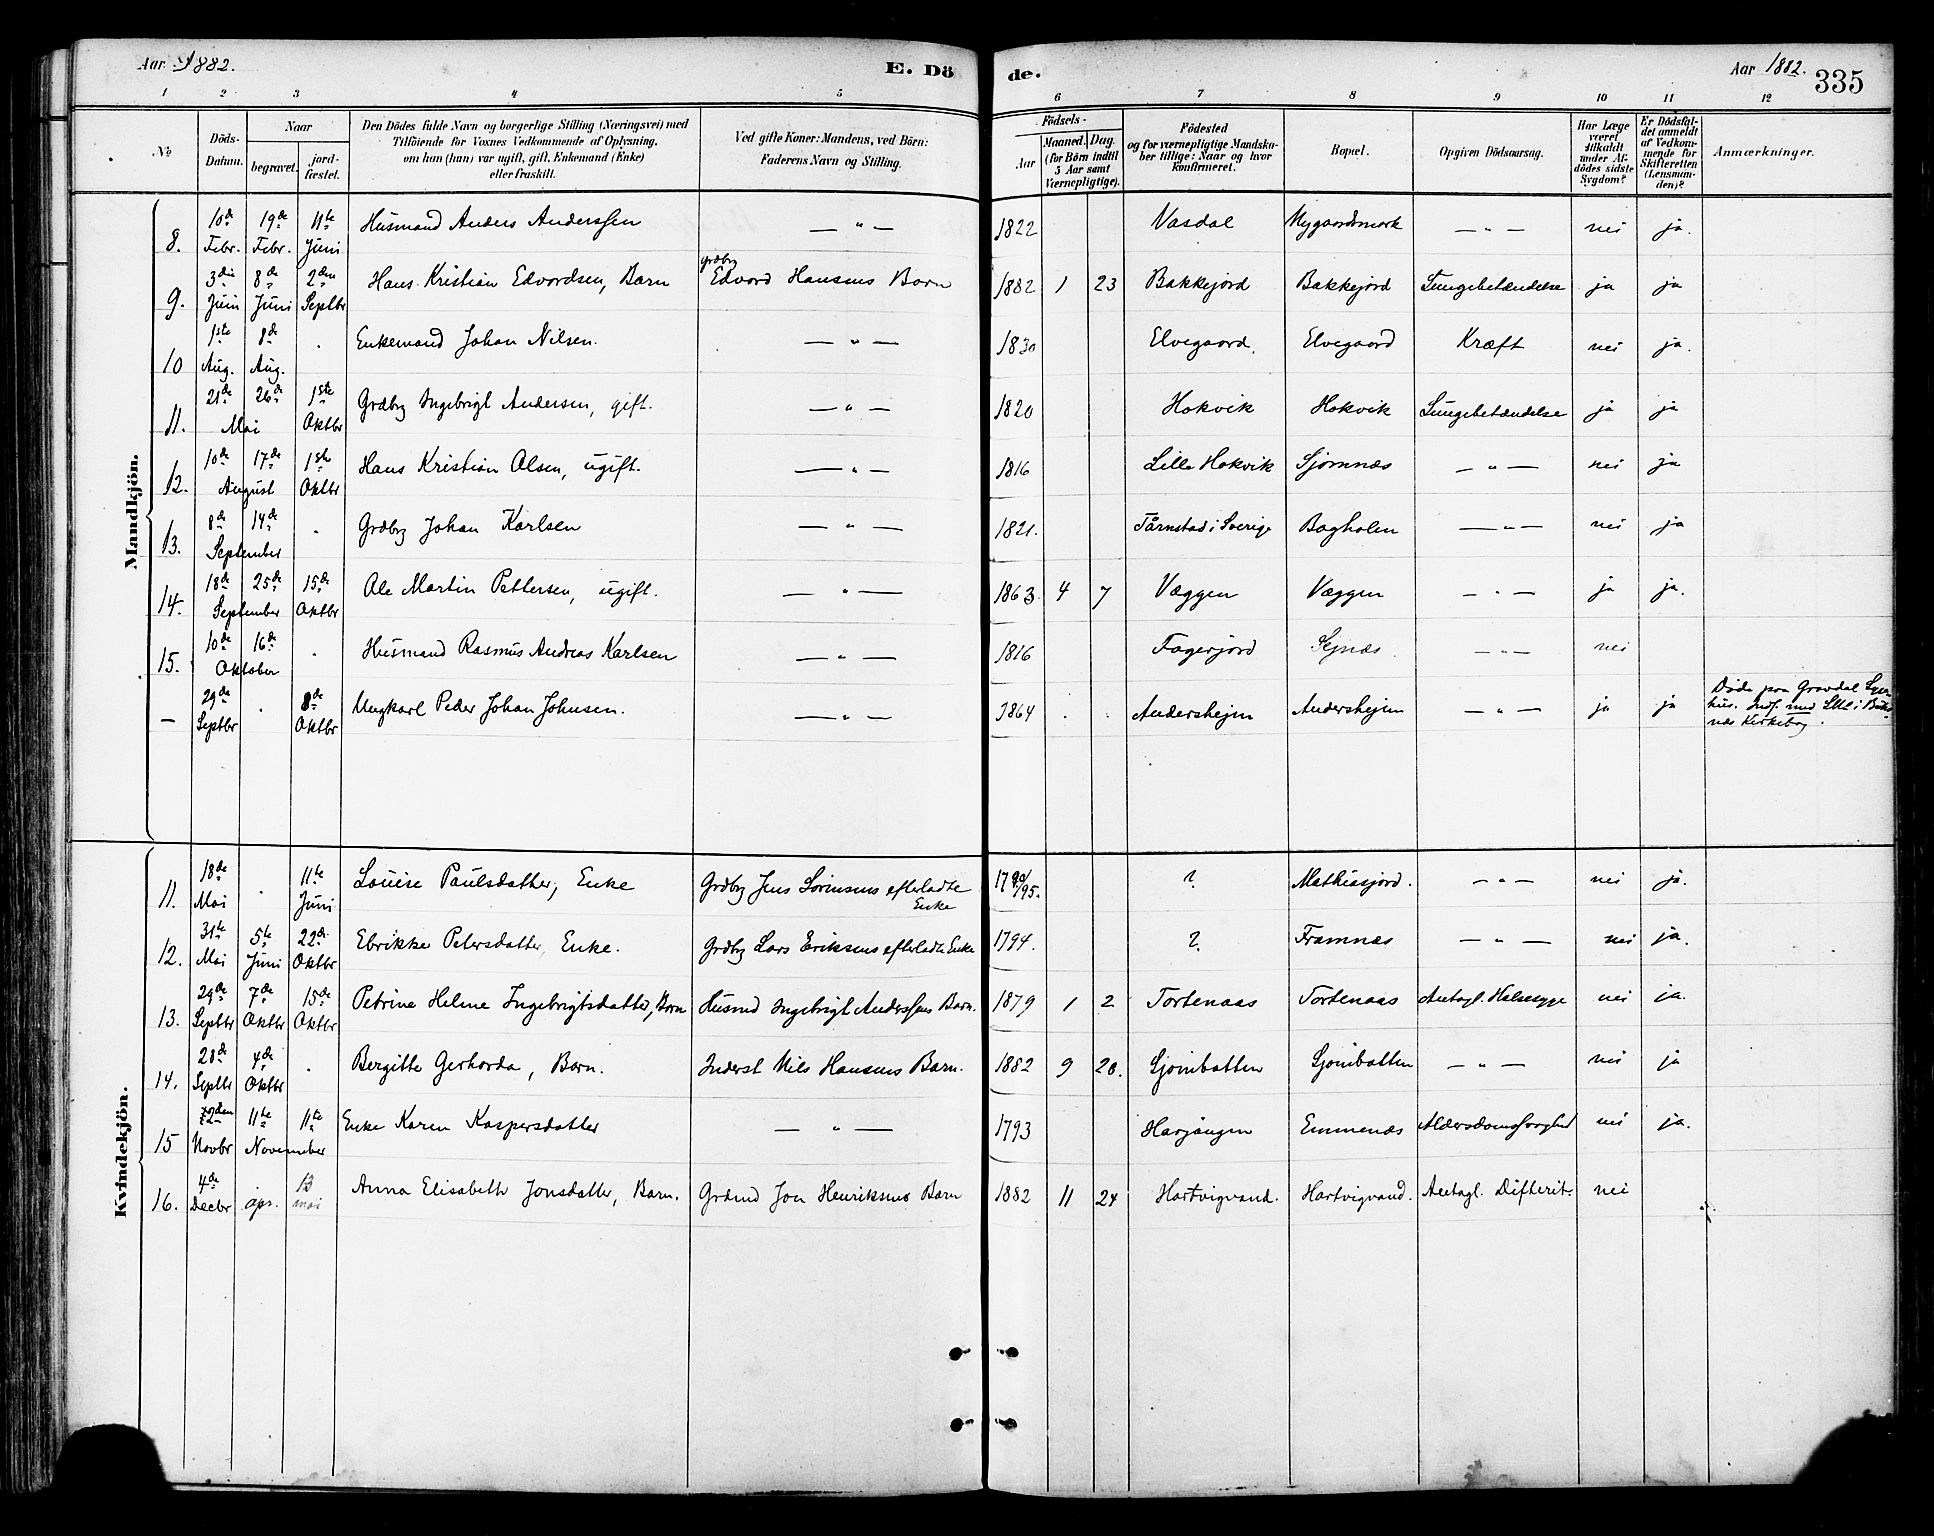 Aar 1882.
E. Dö
de.
Aar 1882.
335
1 2 3 4 5 6 7 8 9 10 11 12
No
Döds-Datum.
Naar
begravet.
jord-fæstet.
Den Dödes fulde Navn og borgerlige Stilling (Næringsvei) med
Tilföiende for Voxnes Vedkommende af Oplysning,
om han (hun) var ugift, gift, Enkemand (Enke)
eller fraskilt.
Ved gifte Koner: Mandens, ved Börn:
Faderens Navn og Stilling.
Födsels-
Aar
Maaned. Dag.
(for Börn indtil
5 Aar samt
Værnepligtige).
Födested
og for værnepligtige Mandska-
ber tillige: Naar og hvor
konfirmeret.
Bopæl.
Opgiven Dödsaarsag.
Har Læge
været
tilkaldt
under Af-
dödes sidste
Sygdom?
Er Dödsfal-
det anmeldt
af Vedkom-
mende for
Skifteretten
(Lensman-
den)?
Anmærkninger.
Mandkjön.
8. 10de Febr. 19de Febr. 11te Juni Husmand Anders Anderssen — " — 1822 Vasdal Nygaardsmark — " — nei ja.
9. 3die Juni 8de Juni 2den Septbr Hans Kristian Edvardsen, Barn Grdbr Edvard Hansens Barn 1882 1 23 Bakkejord Bakkejord Lungebetændelse ja ja
10 1ste Aug. 8de Aug. . Enkemand Johan Nilsen. — " — 1830 Elvegaard. Elvegaard Kræft nei ja.
11. 21de 26de Mai 1ste Oktbr Grdbr Ingebrigt Andersen, gift. — " — 1820 Hokvik Hokvik Lungebetændelse ja ja
12. 10de 17de August 1ste Oktbr Hans Kristian Olsen, ugift. — " — 1816 Lille Hokvik Sjomnæs — " — nei ja
13. 8de 14de September . Grdbr Johan Karlsen — " — 1821. Tårnstad i Sverige Bogholen — " — nei ja
14. 18de 25de September 15de Oktbr Ole Martin Pettersen, ugift. — " — 1863 4 7 Væggen Væggen — " — ja ja.
15. 10de 16de Oktober . Husmand Rasmus Andreas Karlsen — " — 1816 Fagerjord — " — nei
— 29de Septbr . 8de Oktbr Ungkarl Peder Johan Johnsen. — " — 1864 . . Andershejm Andershejm — " — ja ja Døde paa Gravdal Syge-
hus. Indf. med i Buks-
næs Kirkebog.
Kvindekjön.
11. 18de Mai . 11te Juni Louise Paulsdatter, Enke Grdbr Jens Sørensens efterladte Enke 1790/95. ? Mathiasjord. — " — nei ja.
12. 31te Mai 5te Juni 22de Oktbr Ebrikke Petersdatter, Enke. Grdbr Lars Eriksens efterladte Enke 1794. ? Framnæs — " — nei ja.
13. 29de Septbr 7de Oktbr 15de Oktbr Petrine Helene Ingebrigtsdatter, Barn Husmd Ingebrigt Anderssens Barn. 1879 1 2 Tortenaas Tortenaas Antagl. Halssyge nei ja.
14. 28de Septbr 4de Oktbr . Bergitte Gerharda, Barn. Inderst Nils Hansens Barn. 1882 9 28. Sjombotten Sjombotten — " — nei ja
15 2den Novbr 11te 11te November Enke Karen Kaspersdatter — " — 1793 Harjangen Emmenæs Alderdomssvaghed nei ja.
16. 4de Decbr apr. 13 mai Anna Elisabeth Jonsdatter, Barn. Grdmd Jon Henriksens Barn 1882 11 24 Hartvigvand. Hartvigvand. Antagl. Difterit. nei